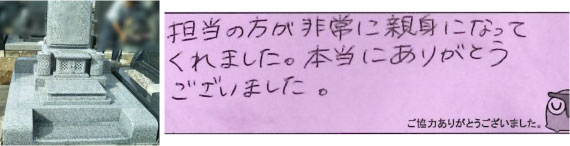 担当の方が非常に親身になって
くれました。本当にありがとう
ございました。
ご協力ありがとうございました。